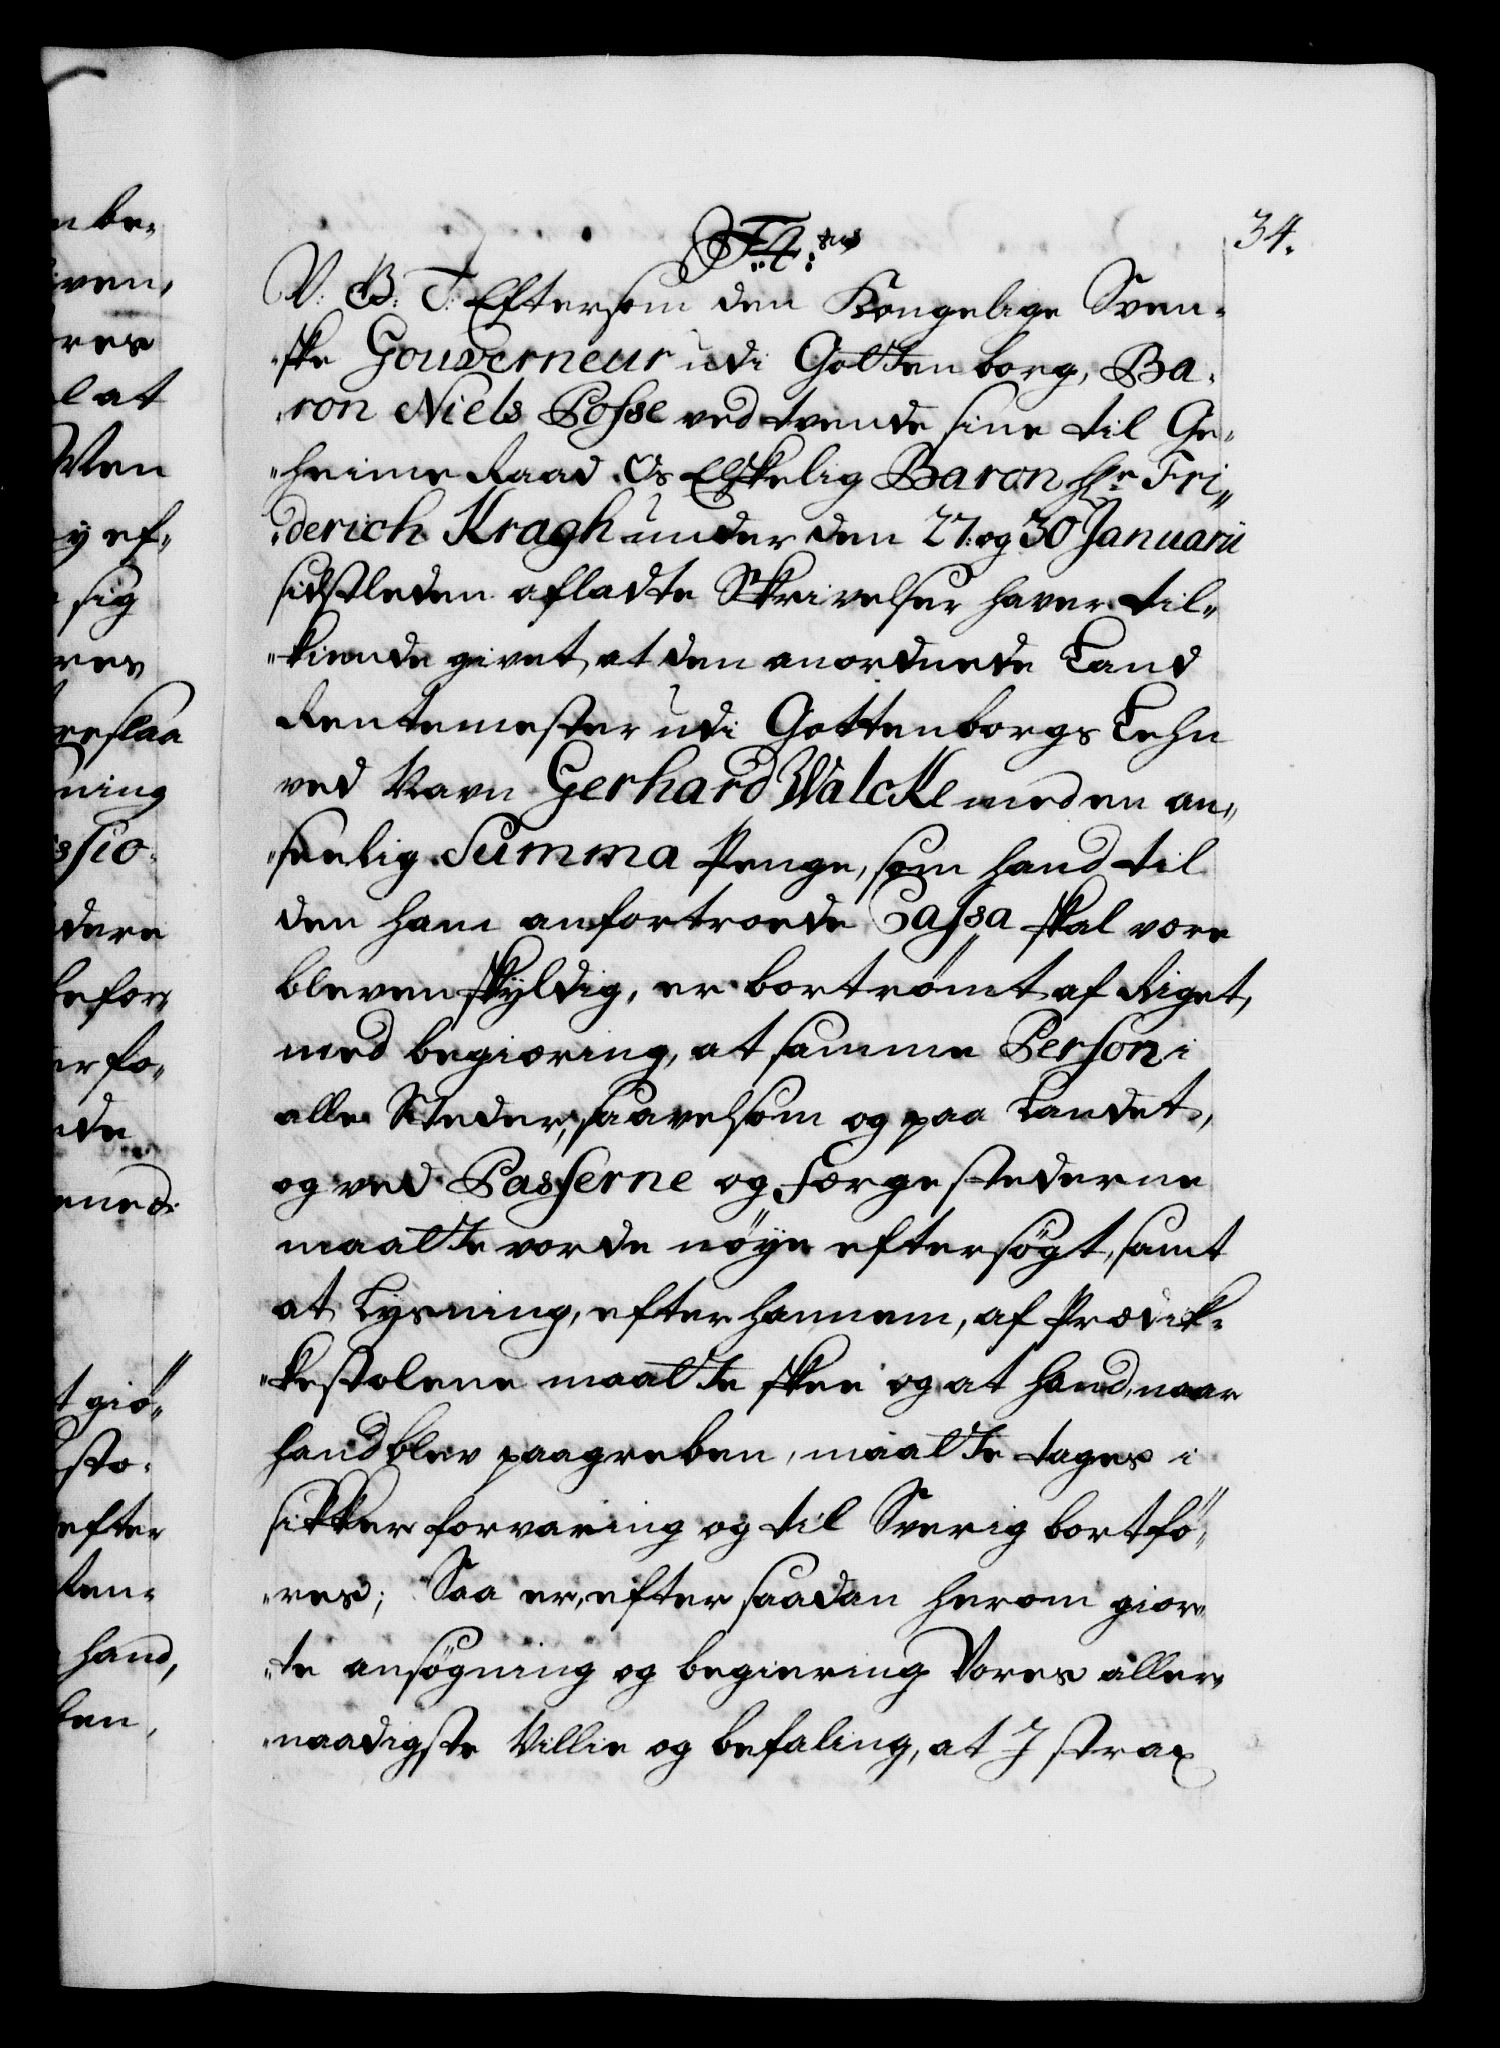 34.
F4:tus
V: G: T: Eftersom den Kongelige Sven-
-ske Gouverneur udi Gottenborg, Ba-
-ron Niels Posse ved tvende sine til Ge-
-heime Raad Os Elskelig Baron Hr Fri-
-derich Kragh under den 27: og 30 Januarii
sidstleden afladte Skrivelser haver til-
-kiende givet, at den anordnede Land
Rentemester udi Gottenborgs Lehn
ved Navn Gerhard Walcke med en an-
-seelig Summa Penge, som hand til
den ham anfortroede Cassa skal være
bleven skyldig, er bortrömt af Riget,
med begiæring, at samme Person i
alle Steder, saavelsom og paa Landet,
og ved Passerne og Færgestederne
maatte vorde nöye eftersögt, samt
at Lysning, efter hannem, af Prædik-
-kestolene maatte skee og at hand, naar
hand blev paagreben, maatte tages i
sikker forvaring og til Sverig bortfö-
-res; Saa er, efter saadan herom gior-
-te ansögning og begiering Vores aller-
-naadigste Villie og befaling, at I strax
n be-
iven,
res
l at
Ven
y ef-
sig
res
reslaa
ning
ssio-
dere
befor-
er fo-
de
ened:
t giö-
sto-
efter
ten-
hand,
ken,